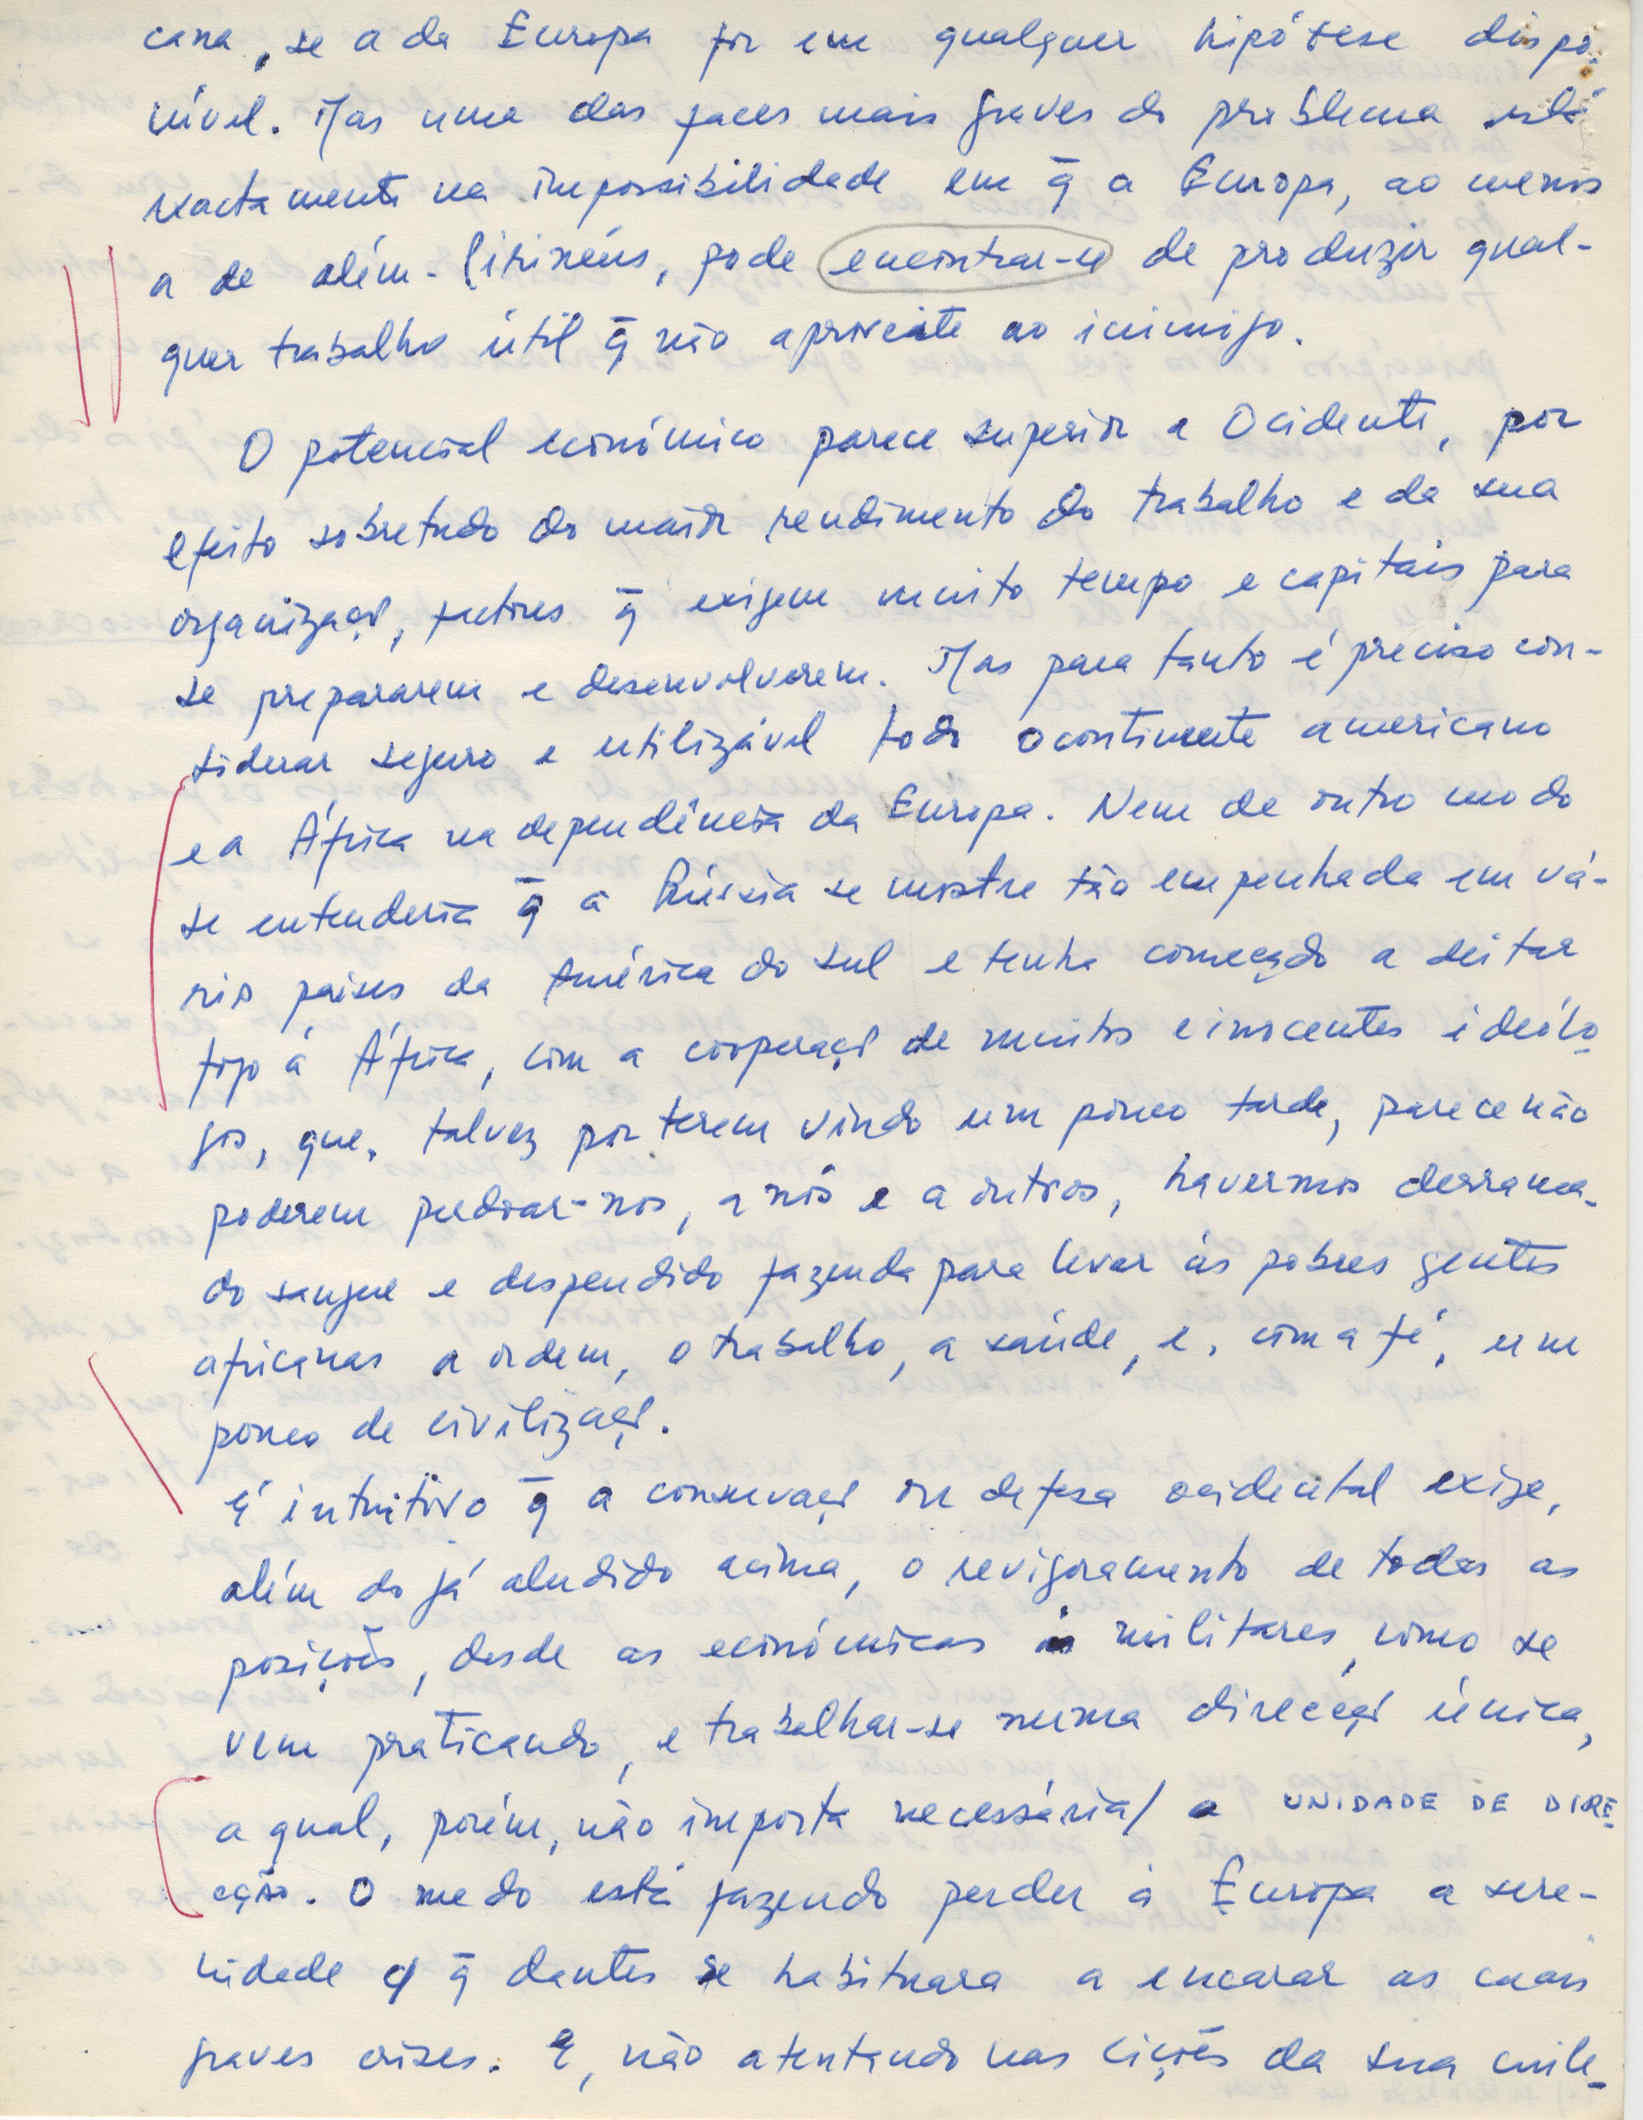 cana, se a da Europa for em qualquer hipótese dispo-
nível. Mas uma das faces mais graves do problema está
exactamente na impossibilidade em q̄ a Europa, ao menos
a de além-Pirinéus, pode encontrar-se de produzir qual-
quer trabalho útil q̄ não aproveite ao inimigo.
O potencial económico parece superior a Ocidente, por
efeito sobretudo do maior rendimento do trabalho e da sua
organizaçº, factores q̄ exigem muito tempo e capitais para
se prepararem e desenvolverem. Mas para tanto é preciso con-
siderar seguro e utilizável todo o continente americano
e a África na dependência da Europa. Nem de outro modo
se entenderia q̄ a Rússia se mostre tão empenhada em vá-
rios países da América do Sul e tenha começado a deitar
fogo à África, com a cooperaçº de muitos e inocentes ideólo-
gos, que, talvez por terem vindo um pouco tarde, parece não
poderem perdoar-nos, a nós e a outros, havermos derrama-
do sangue e despendido fazenda para levar às pobres gentes
africanas a ordem, o trabalho, a saúde, e, com a fé, um
pouco de civilizaçº.
É intuitivo q̄ a conservaçº ou defesa ocidental exige,
além do já aludido acima, o revigoramento de todas as
posições, desde as económicas às militares, como se
vem praticando, e trabalhar-se numa direcçº única,
a qual, porém, não importa necessária/ a UNIDADE DE DIRE-
cção. O medo está fazendo perder à Europa a sere-
nidade c/ q̄ dantes se habituara a encarar as mais
graves crises. E, não atentando nas lições da sua mile-